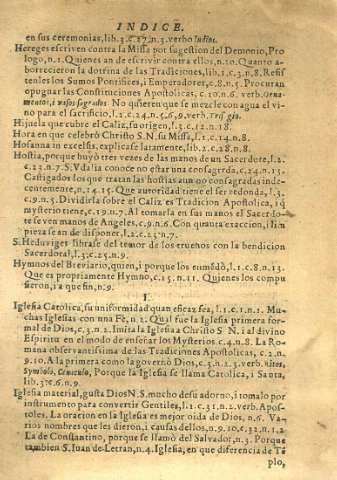 INDICE.
en sus ceremonias, lib.3.c.27.n.3. verbo Indios.
Hereges escriven contra la Missa por sugestion del Demonio, Pro
logo, n.1. Quienes an de escrivir contra ellos, n.10. Quanto a-
borrecieron la dotrina de las Tradiciones, lib.1.c.3.n.8. Resis
tenles los Sumos Pontifices, i Emperadores, c.8.n.3. Procuran
opugnar las Constituciones Apostolicas, c.10.n.6. verb. Orna-
mento, i vasos sagrados. No quieren que se mezcle con agua el vi
no para el sacrificio, l.2.c.24.n.5,6,9. verb. Trisagio.
Hijuela que cubre el Caliz, su origen, l.3.c.12.n.18.
Hora en que celebrò Christo S.N. su Missa, l.1.c.14.n.8.
Hosanna in excelsis, explicase laramente, lib.2.c.28.n.8.
Hostia, porque huyò tres vezes de las manos de un Sacerdote, l.2.
c.23.n.7. S. Vdalia conoce no estar una consagrada, c.24.n.13.
Castigados los que tratan las hostias aun no consagradas inde-
centemente, n.14.15. Que autoridad tiene el ser redonda, l.3.
c.9.n.5. Dividirla sobre el Caliz es Tradicion Apostolica, i q̃
mysterio tiene, c.19.n.7. Al tomarla en sus manos el Sacerdo-
te se ven manos de Angeles, c.9.n.6. Con quanta exaccion, i lim
pieza se an de disponer, l.2.c.25.n.7.
S. Heduviges librase del temor de los truenos con la bendicion
Sacerdotal, l.3.c.25.n.9.
Hymnos del Breviario, quien, i porque los enmẽdò, l.1.c.8.n.13.
Que es propriamente Hymno, c.15.n.11. Quienes los compu
sieron, i a que fin, n.9.
I.
Iglesia Catolica, su uniformidad quan eficaz sea, l.1.c.1.n.1. Mu-
chas Iglesias con una Fè, n.2. Qual fue la Iglesia primera for-
mal de Dios, c.3.n.2. Imita la Iglesia a Christo S N. i al divino
Espiritu en el modo de enseñar los Mysterios. c.4.n.8. La Ro-
mana observantissima de las Tradiciones Apostolicas, c.2.n.
9.10. A la primera como la governò Dios, c.3.n.2.3. verb. Rites,
Symbolo, Cenaculo, Porque la Iglesia se llama Catolica, i Santa,
lib.3.c.6.n.9.
Iglesia material, gusta Dios N.S. mucho de su adorno, i tomalo por
instrumento para convertir Gentiles, l.1.c.31.n.2. verb. Apos-
toles. La oracion en la Iglesia es mejor oida de Dios, n.6. Va-
rios nombres que les dieron, i causas dellos, n.9.10.c.32.n.1.2.
La de Constantino, porque se llamò del Salvador, n.3. Porque
tambien S. Iuan de Letran, n.4. Iglesia, en que diferencia de Tẽ
plo,